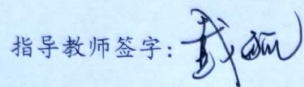 指导教师签字: